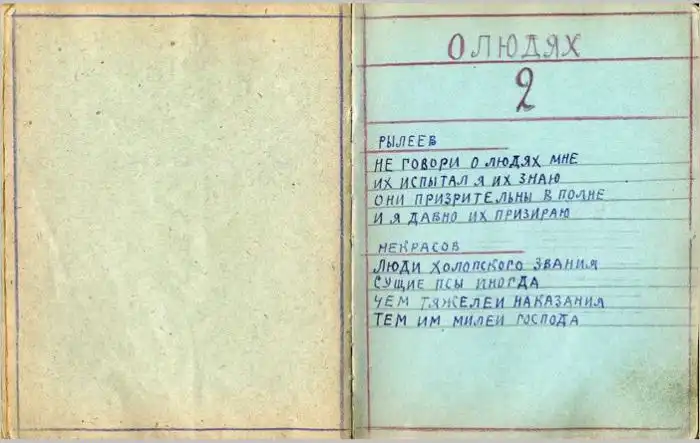 О ЛЮДЯХ
2
РЫЛЕЕВ
НЕ ГОВОРИ О ЛЮДЯХ МНЕ
ИХ ИСПЫТАЛ Я ИХ ЗНАЮ
ОНИ ПРИЗРИТЕЛЬНЫ В ПОЛНЕ
И Я ДАВНО ИХ ПРИЗИРАЮ
НЕКРАСОВ
ЛЮДИ ХОЛОПСКОГО ЗВАНИЯ
СУЩИЕ ПСЫ ИНОГДА
ЧЕМ ТЯЖЕЛЕИ НАКАЗАНИЯ
ТЕМ ИМ МИЛЕИ ГОСПОДА